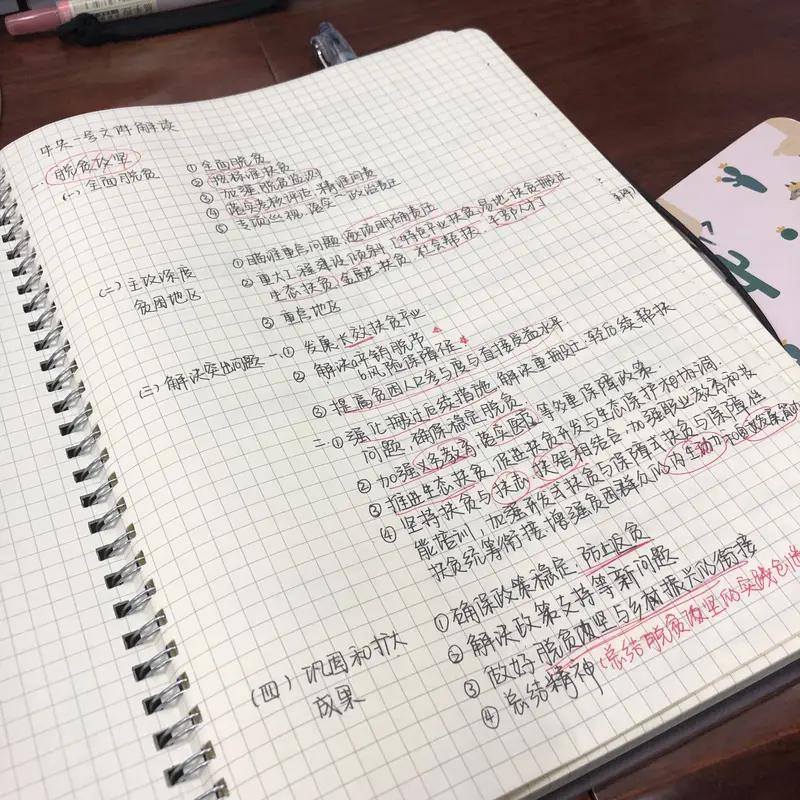 中央一号文件解读
一、脱贫攻坚
(一)全面脱贫
①全面脱贫
②按标准扶贫
③加强脱贫监测
④落实考核评估,精准问责
⑤专项巡视,落实政治责任
(二)主攻深度
贫困地区
①瞄准重点问题,逐项明确责任
②重大工程建设倾斜【特色产业扶贫,易地扶贫搬迁
生态扶贫,金融扶贫,社会帮扶,干部人才】
③重点地区
(三)解决突出问题
一、①发展长效扶贫产业
②解决产销脱节
风险保障低
③提高贫困人口参与度与直接受益水平
二、①强化搬迁后续措施,解决重搬迁,轻后续帮扶
问题,确保稳定脱贫
②加强义务教育,落实医疗等多重保障政策.
③推进生态扶贫,促进扶贫开发与生态保护相协调.
④坚持扶贫与扶志,扶智相结合,加强职业教育和技
能培训,加强开发式扶贫与保障式扶贫与保障性
扶贫统筹衔接,增强贫困群众的内生动力和自我发展能力
(四)巩固和扩大
成果
①确保政策稳定,防止返贫
②解决政策支持等新问题
③做好脱贫攻坚与乡村振兴的衔接
④总结精神(总结脱贫攻坚的实践创造